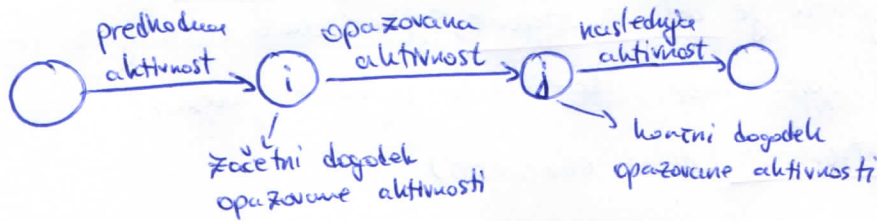 predhodna
aktivnost
opazovana
aktivnost
naslednja
aktivnost
i
j
začetni dogodek
opazovane aktivnosti
končni dogodek
opazovane aktivnosti